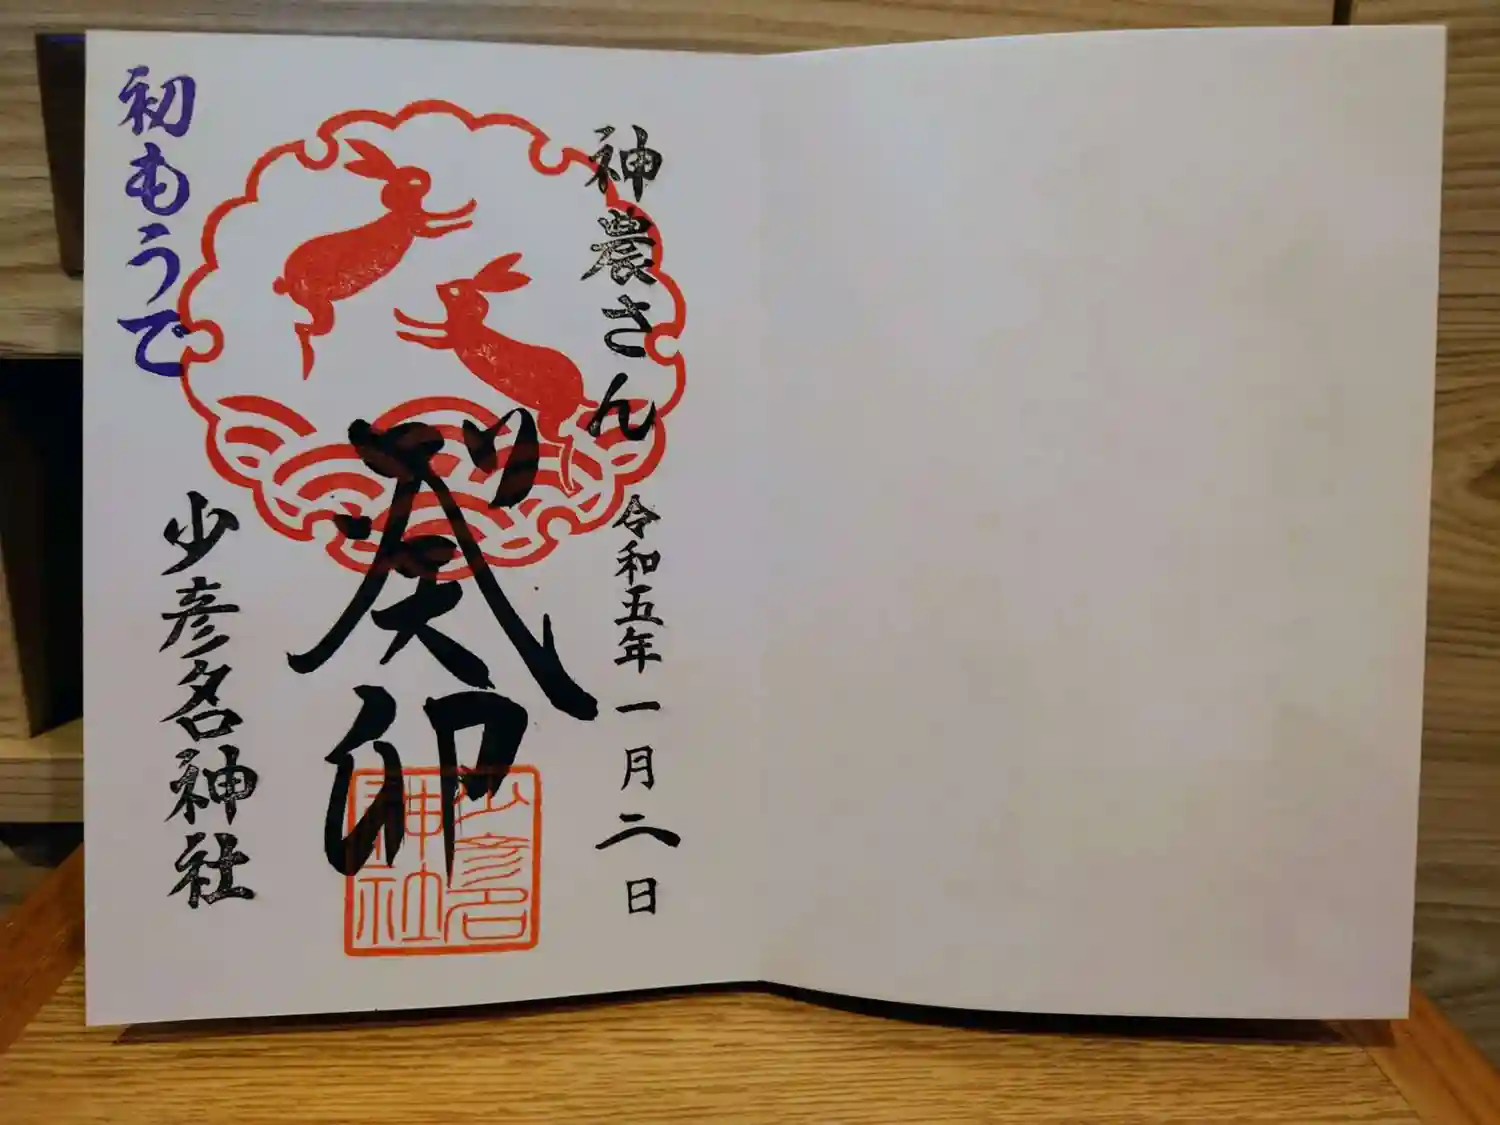 神農さん
令和五年一月二日
癸卯
少彦名神社
初もうで
少彦名神社